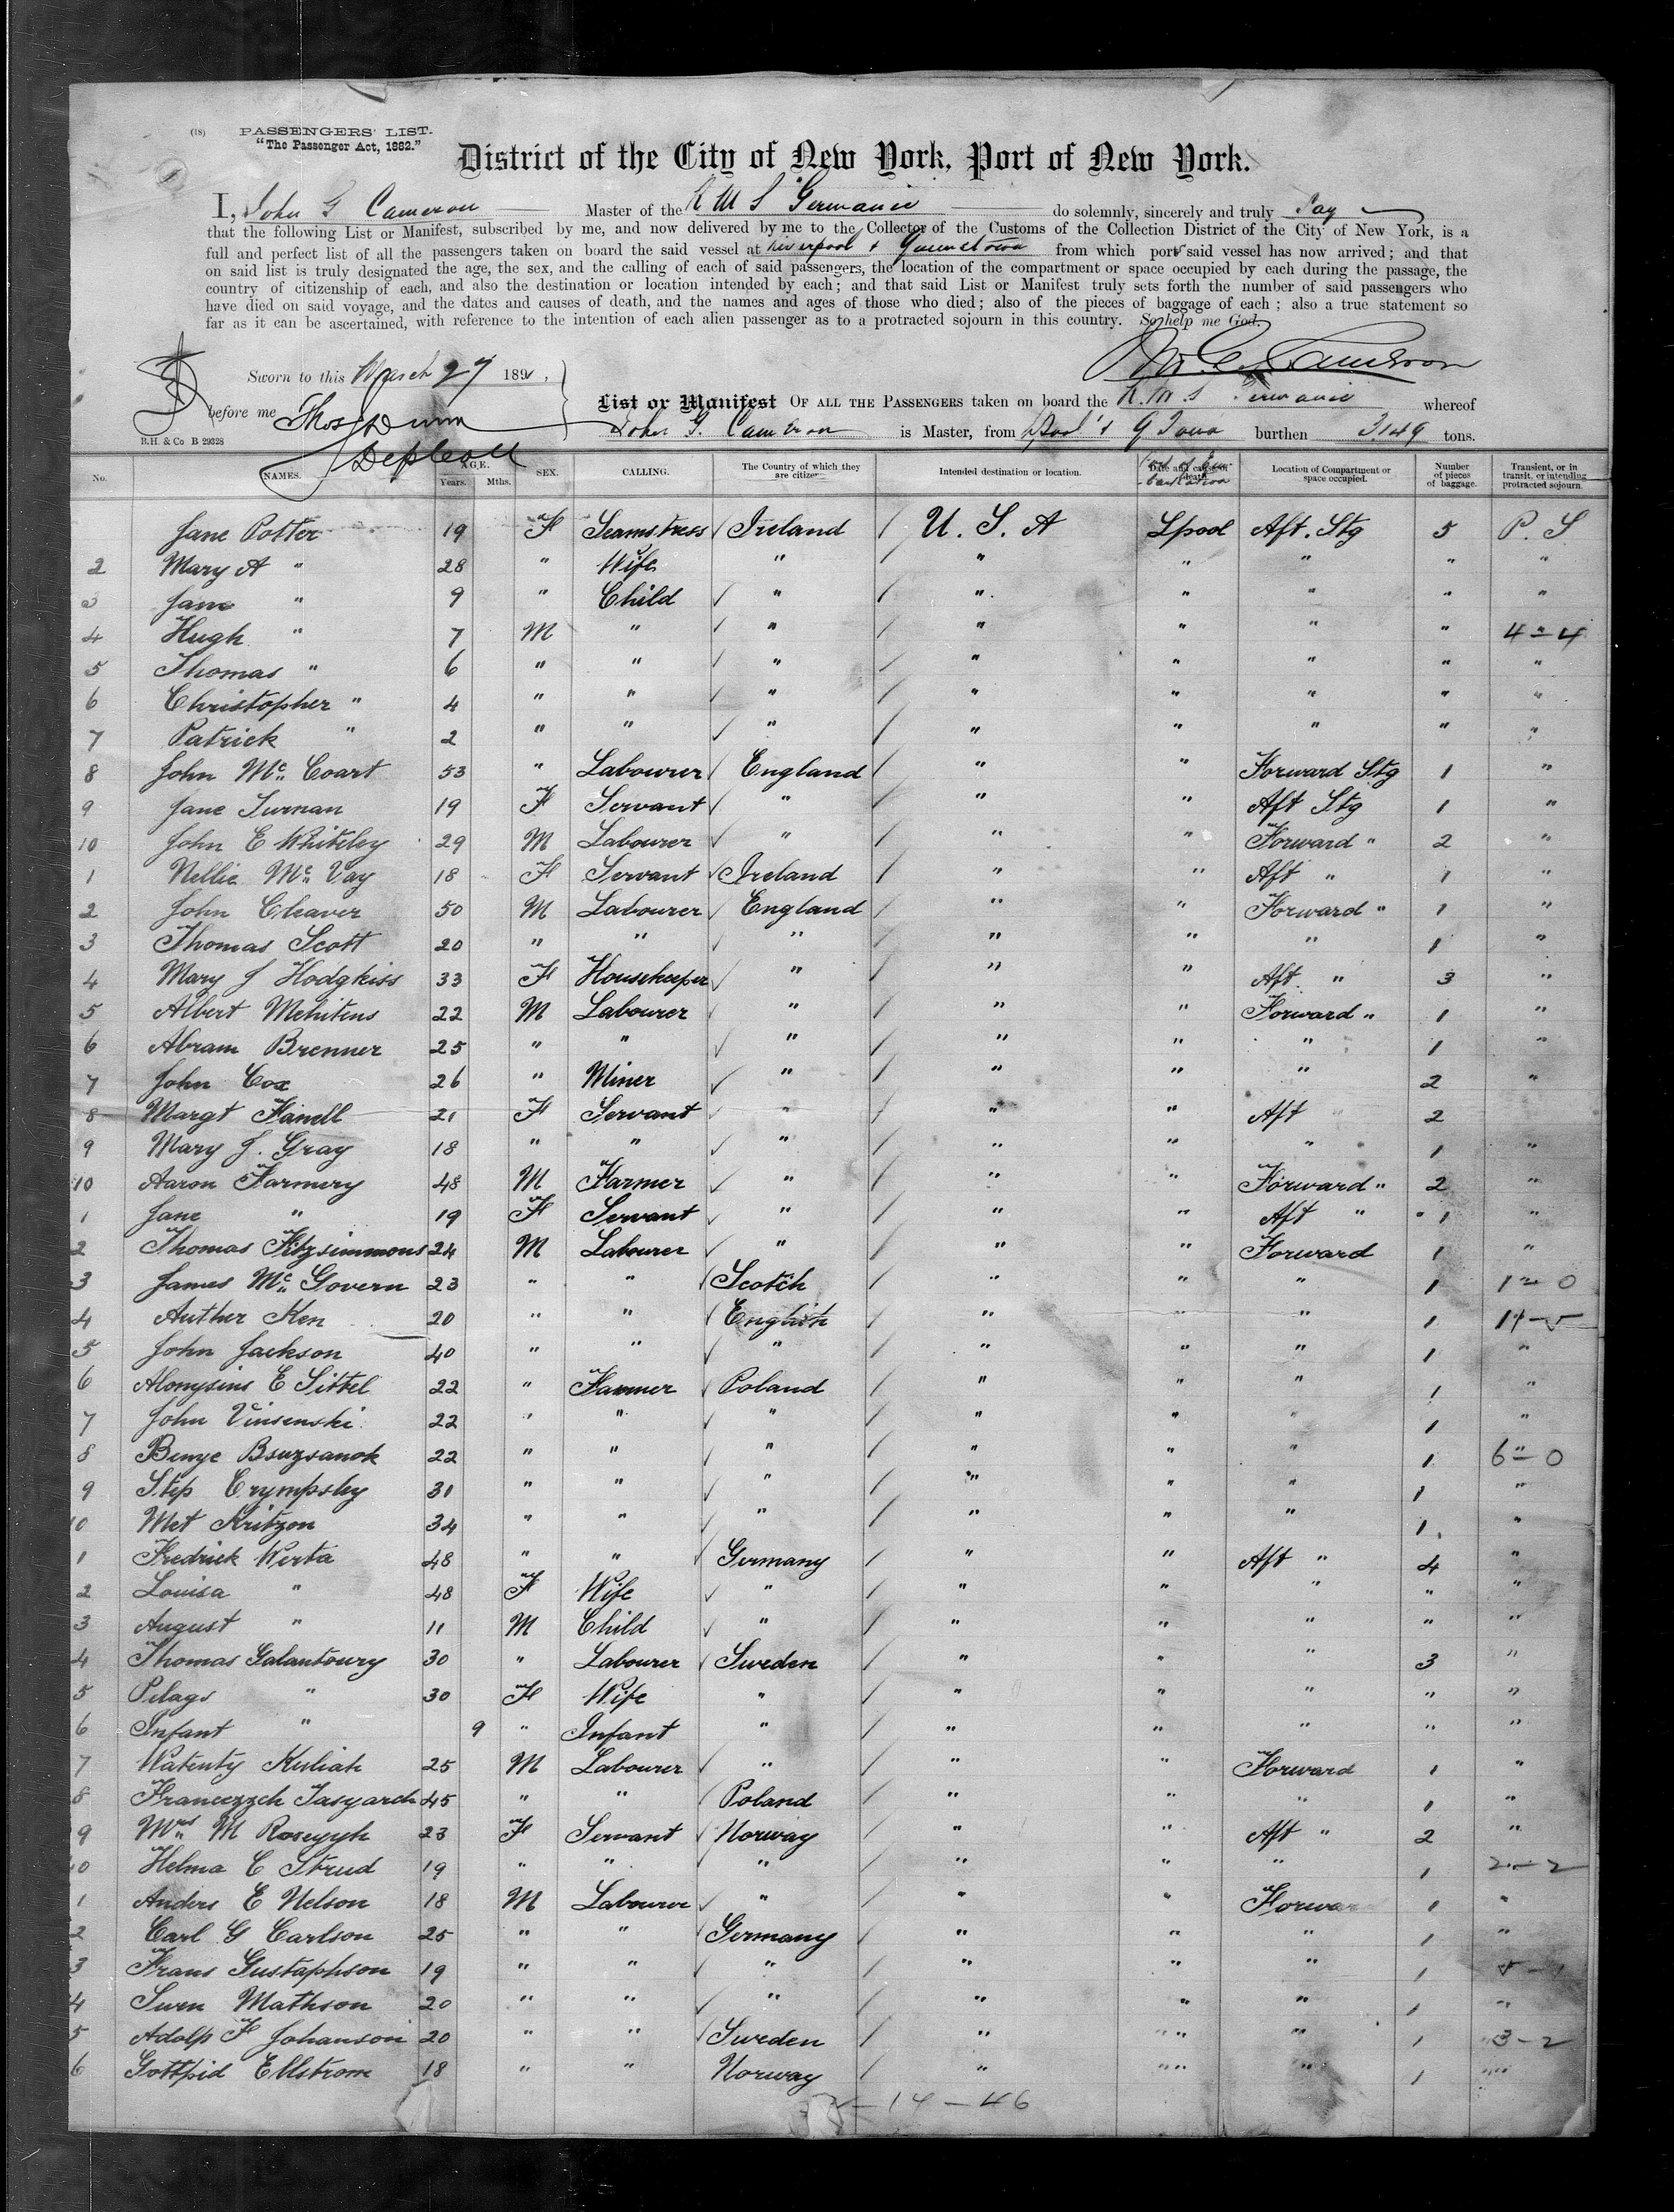 (18) PASSENGERS' LIST.
"The Passenger Act, 1882."
District of the City of New York, Port of New York.
I, John G Cameron Master of the R M S Germanic do solemnly, sincerely and truly Say
that the following List or Manifest, subscribed by me, and now delivered by me to the Collector of the Customs of the Collection District of the City of New York, is a
full and perfect list of all the passengers taken on board the said vessel at Liverpool & Queenstown from which port said vessel has now arrived; and that
on said list is truly designated the age, the sex, and the calling of each of said passengers, the location of the compartment or space occupied by each during the passage, the
country of citizenship of each, and also the destination or location intended by each; and that said List or Manifest truly sets forth the number of said passengers who
have died on said voyage, and the dates and causes of death, and the names and ages of those who died; also of the pieces of baggage of each; also a true statement so
far as it can be ascertained, with reference to the intention of each alien passenger as to a protracted sojourn in this country. So help me God.
Sworn to this March 27 189
before me Thos Dunn
B.H. & Co B 29328
List or Manifest OF ALL THE PASSENGERS taken on board the R. M. S Germanic whereof
John G. Cameron is Master, from Lpool & Q Town burthen 3149 tons.
No. NAMES. AGE. Years. Mths. SEX. CALLING. The Country of which they are citizens. Intended destination or location. Date and cause of death. Location of Compartment or space occupied. Number of pieces of baggage. Transient, or in transit, or intending protracted sojourn.
Jane Potter 19 F Seamstress Ireland U. S. A Lpool Aft. Stg 5 P. S
2 Mary A " 28 " Wife " " " " " "
3 Jane " 9 " Child " " " " " "
4 Hugh " 7 M " " " " " " 4 " 4
5 Thomas " 6 " " " " " " " "
6 Christopher " 4 " " " " " " " "
7 Patrick " 2 " " " " " " " "
8 John Mc Coart 53 " Labourer England " " Forward Stg 1 "
9 Jane Turnan 19 F Servant " " " Aft Stg 1 "
10 John E Whiteley 29 M Labourer " " " Forward " 2 "
1 Nellie Mc Vay 18 F Servant Ireland " " Aft " 1 "
2 John Cleaver 50 M Labourer England " " Forward " 1 "
3 Thomas Scott 20 " " " " " " 1 "
4 Mary J Hodgkiss 33 F Housekeeper " " " Aft " 3 "
5 Albert 22 M Labourer " " " Forward " 1 "
6 Abram Brenner 25 " " " " " " 1 "
7 John Cox 26 " Miner " " " " 2 "
8 Margt 21 F Servant " " " Aft 2
9 Mary J. Gray 18 " " " " " " 1 "
10 Aaron Farmery 48 M Farmer " " " Forward " 2 "
1 Jane " 19 F Servant " " " Aft " 1 "
2 Thomas Fitzsimmons 24 M Labourer " " " Forward 1 "
3 James Mc Govern 23 " " Scotch " " " 1 1 " 0
4 Auther Ken 20 " " English " " " 1
5 John Jackson 40 " " " " " " 1 "
6 Alonysins E Sittel 22 " Farmer Poland " " " 1 "
7 John Vinsenski 22 " " " " " " 1 "
8 Benye Bsuzsanok 22 " " " " " " 1 6 " 0
9 Step Crympsky 31 " " " " " " 1 "
10 Met Kritzon 34 " " " " " " 1 "
1 Fredrick Werta 48 " " Germany " " Aft " 4 "
2 Louisa " 48 F Wife " " " " " "
3 August " 11 M Child " " " " " "
4 Thomas Galantoury 30 " Labourer Sweden " " " 3 "
5 Pelags " 30 F Wife " " " " " "
6 Infant " 9 " Infant " " " " " "
7 Watenty Kuliah 25 M Labourer " " " Forward 1 "
8 Franczzch Tasyarch 45 " " Poland " " " 1 "
9 Mrs M 23 F Servant Norway " " Aft " 2 "
10 Helma C Strud 19 " " " " " " 1 2 - 2
1 Anders E Nelson 18 M Labourer " " " Forward 1 "
2 Carl G Carlson 25 " " Germany " " " 1 "
3 Frans Gustaphson 19 " " " " " " 1
4 Swen Mathson 20 " " " " " " 1 "
5 Adolp F Johanson 20 " " Sweden " " " 1 3 - 2
6 Gottpid Ellstrom 18 " " Norway " " " 1 "
- 14 - 46